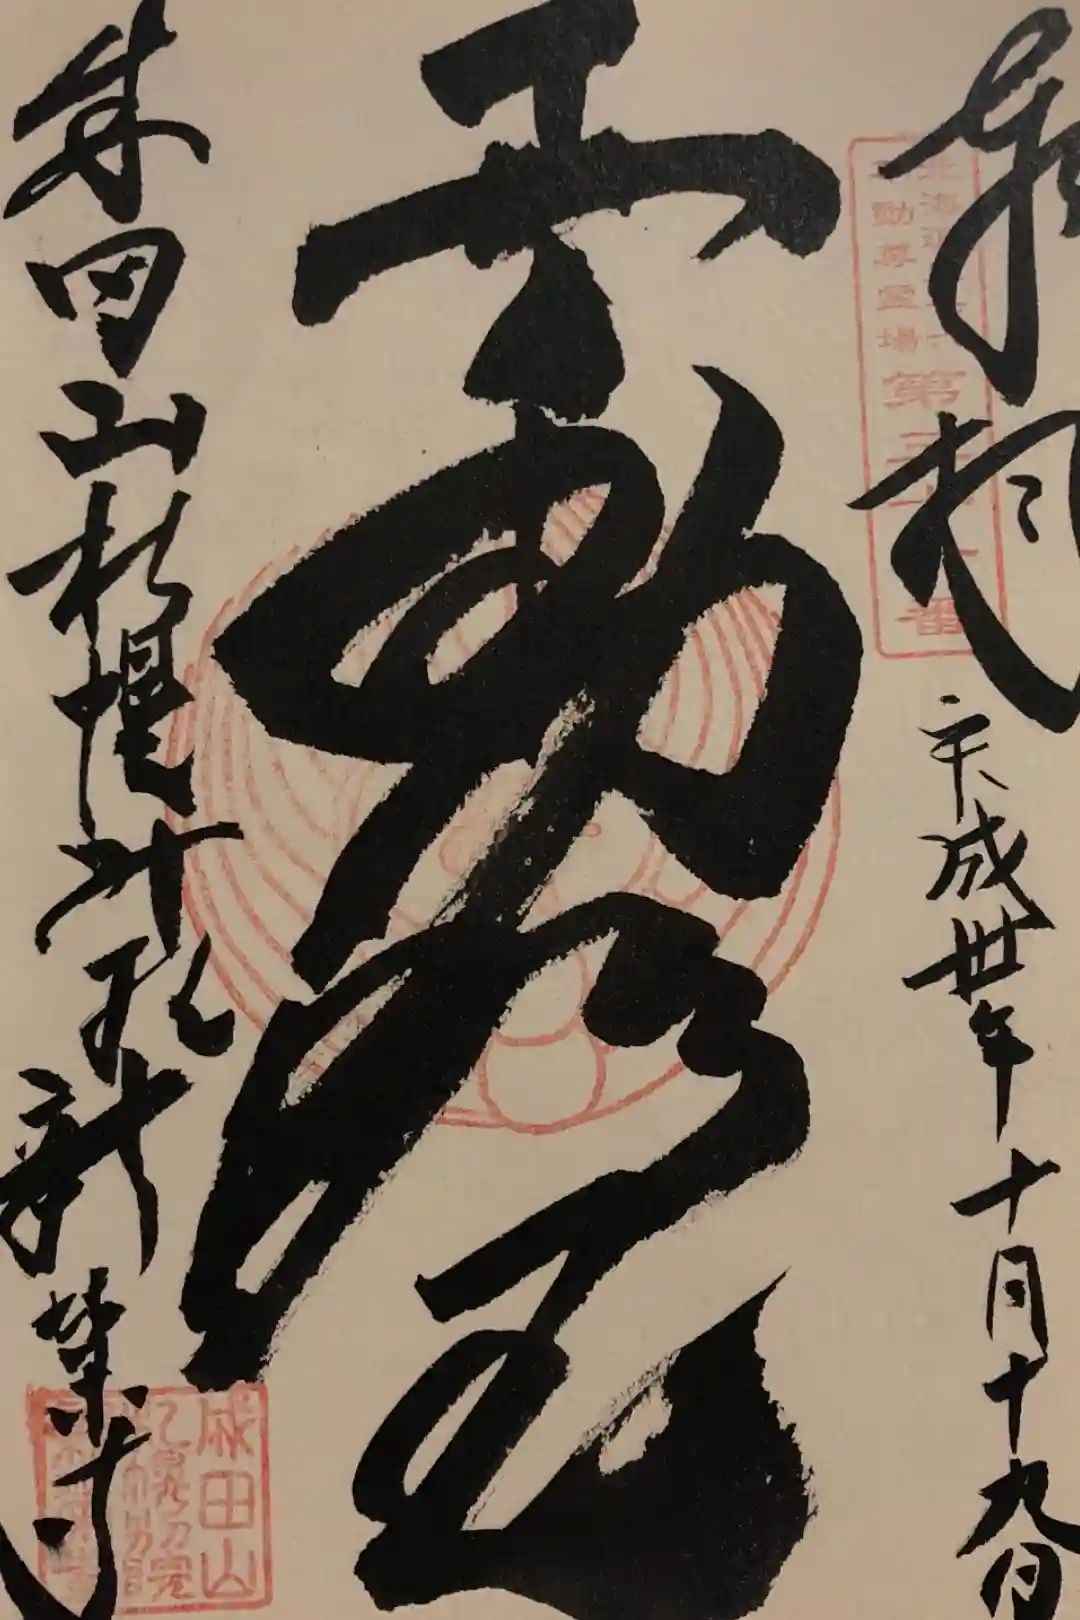 奉拝
平成卅年十月十九日
北海道三十六
不動尊霊場
第三十一番
不動明王
成田山札幌別院新栄寺
成田山